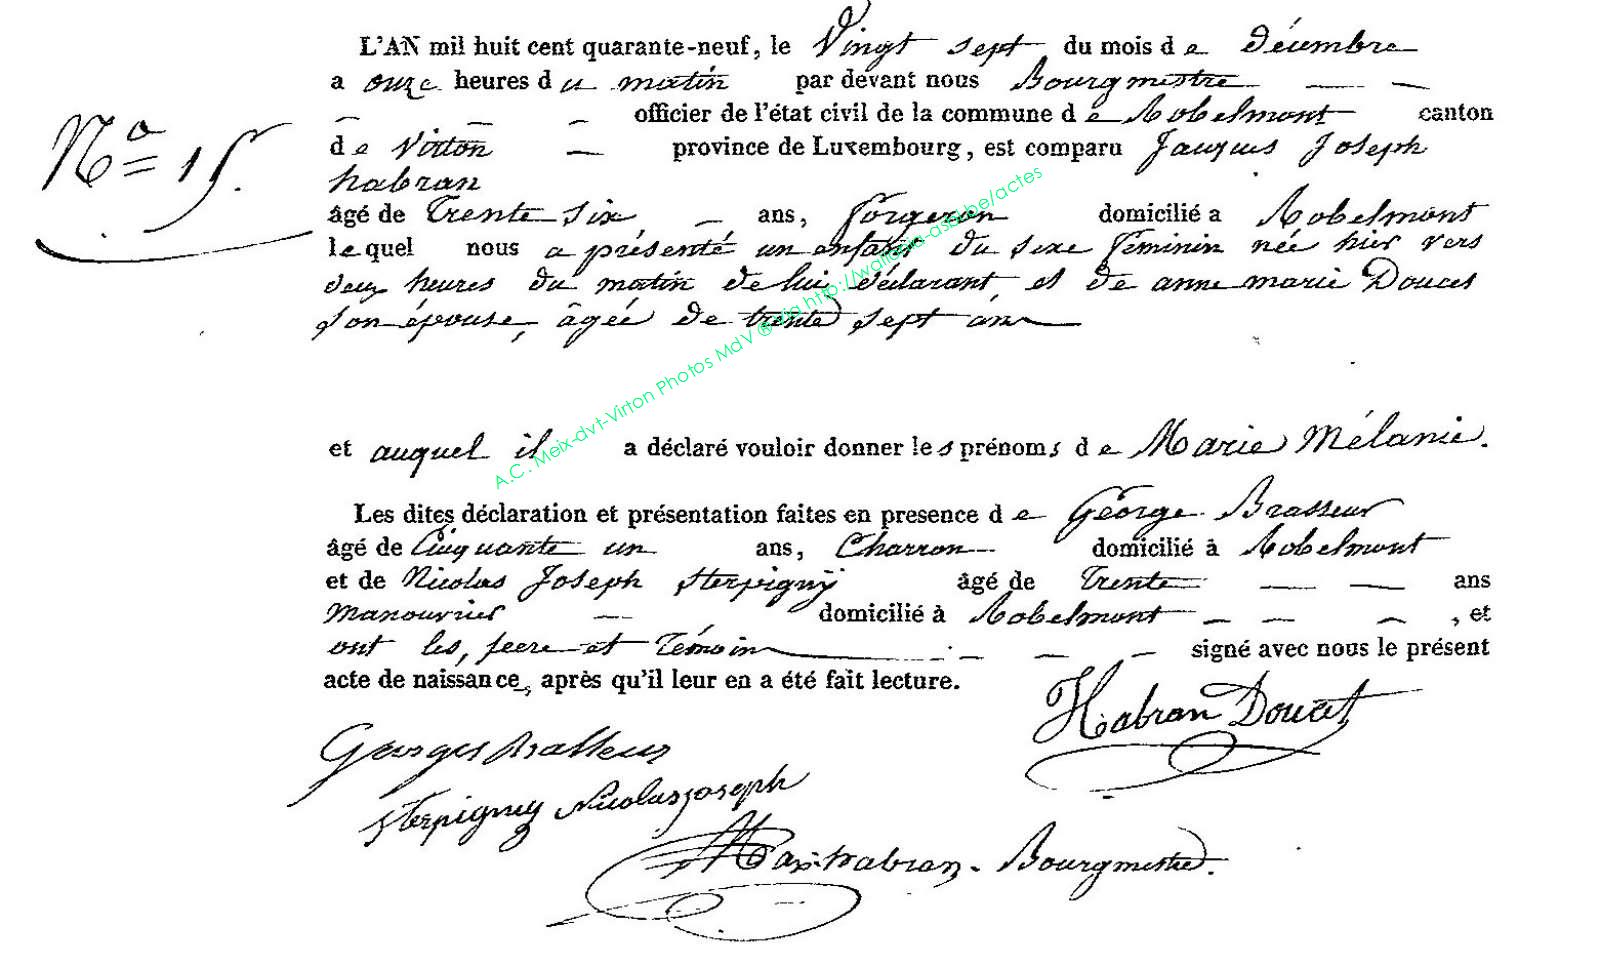 L'AN mil huit cent quarante-neuf, le Vingt sept du mois de décembre
a onze heures du matin par devant nous Bourgmestre
officier de l'état civil de la commune de Robelmont canton
N° 15.
de Virton province de Luxembourg, est comparu Jacques Joseph
habran
âgé de Trente Six ans, forgeron domicilié a Robelmont
lequel nous a présenté un enfant du sexe féminin née hier vers
deux heures du matin de lui déclarant et de anne marie Doucet
son épouse, âgée de trente sept ans
et auquel il a déclaré vouloir donner les prénoms de Marie Mélanie.
Les dites déclaration et présentation faites en presence de George Brasseur
âgé de Cinquante un ans, Charron domicilié à Robelmont
et de Nicolas Joseph Sterpigny âgé de Trente ans
Manouvrier domicilié à Robelmont , et
ont les, peere et Témoin signé avec nous le présent
acte de naissance, après qu'il leur en a été fait lecture.
Habran Doucet
Georges Brasseur
Sterpigny Nicolas joseph
habran Bourgmestre.
A.C. Meix-dvt-Virton Photos MdV ® via http://wallonia-asbl.be/actes